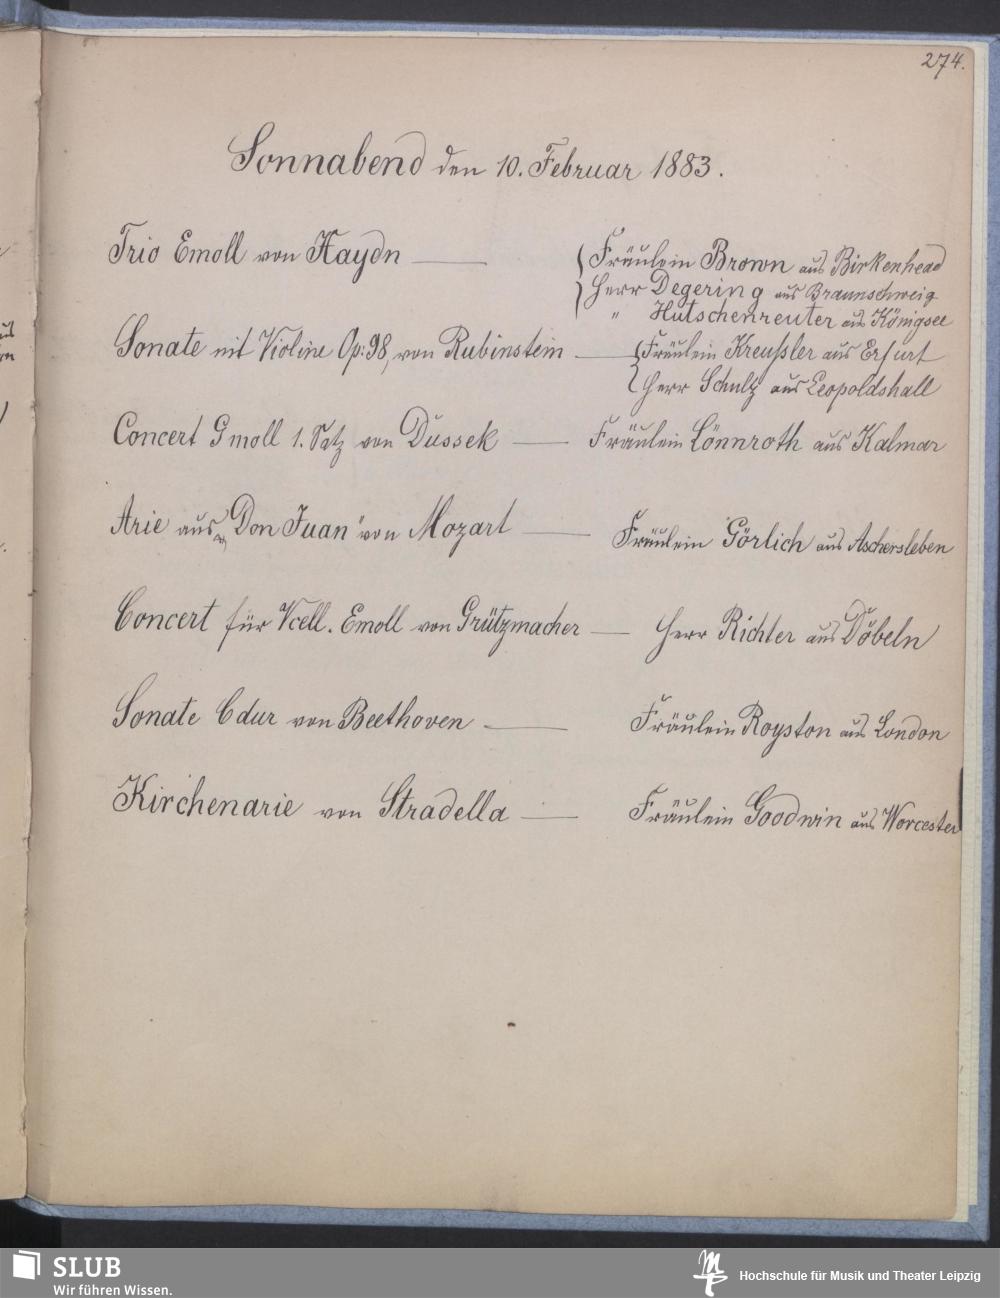 274.
Sonnabend den 10. Februar 1883.
Trio Emoll von Haydn — Fräulein Brown aus Birkenhead
Herr Degering aus Braunschweig
" Hutschenreuter aus Königsee
Sonate mit Violine Op: 98, von Rubinstein — Fräulein Kreußler aus Erfurt
Herr Schultz aus Leopoldshall
Concert Gmoll 1. Satz von Dussek — Fräulein Lönnroth aus Kalmar
Arie aus „Don Juan" von Mozart — Fräulein Görlich aus Aschersleben
Concert für Vcell. Emoll von Grützmacher — Herr Richter aus Döbeln
Sonate Cdur von Beethoven — Fräulein Royston aus London
Kirchenarie von Stradella — Fräulein Goodwin aus Worcester
SLUB
Wir führen Wissen.
Hochschule für Musik und Theater Leipzig